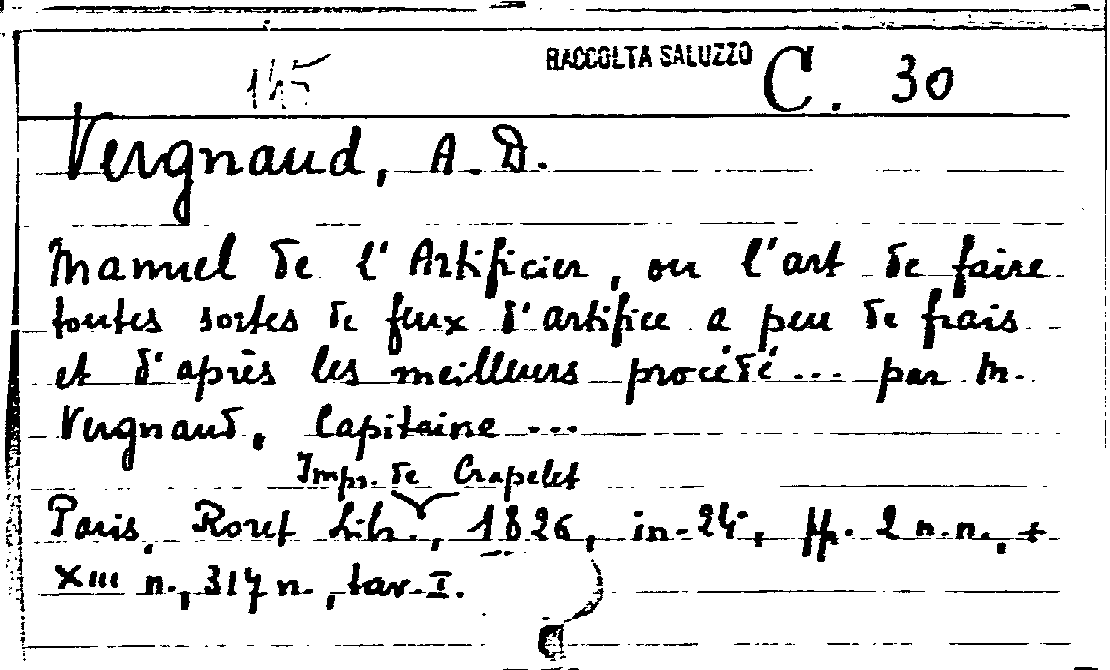 145 RACCOLTA SALUZZO C. 30
Vergnaud, A. D.
Manuel de l'Artificier, ou l'art de faire
toutes sortes de feux d'artifice a peu de frais
et d'après les meilleurs procédé ... par M.
Vergnaud, Capitaine ...
Impr. de Crapelet
Paris, Roret Lib., 1826, in-24°, pp. 2 n.n., +
XIII n., 317 n., tav. I.